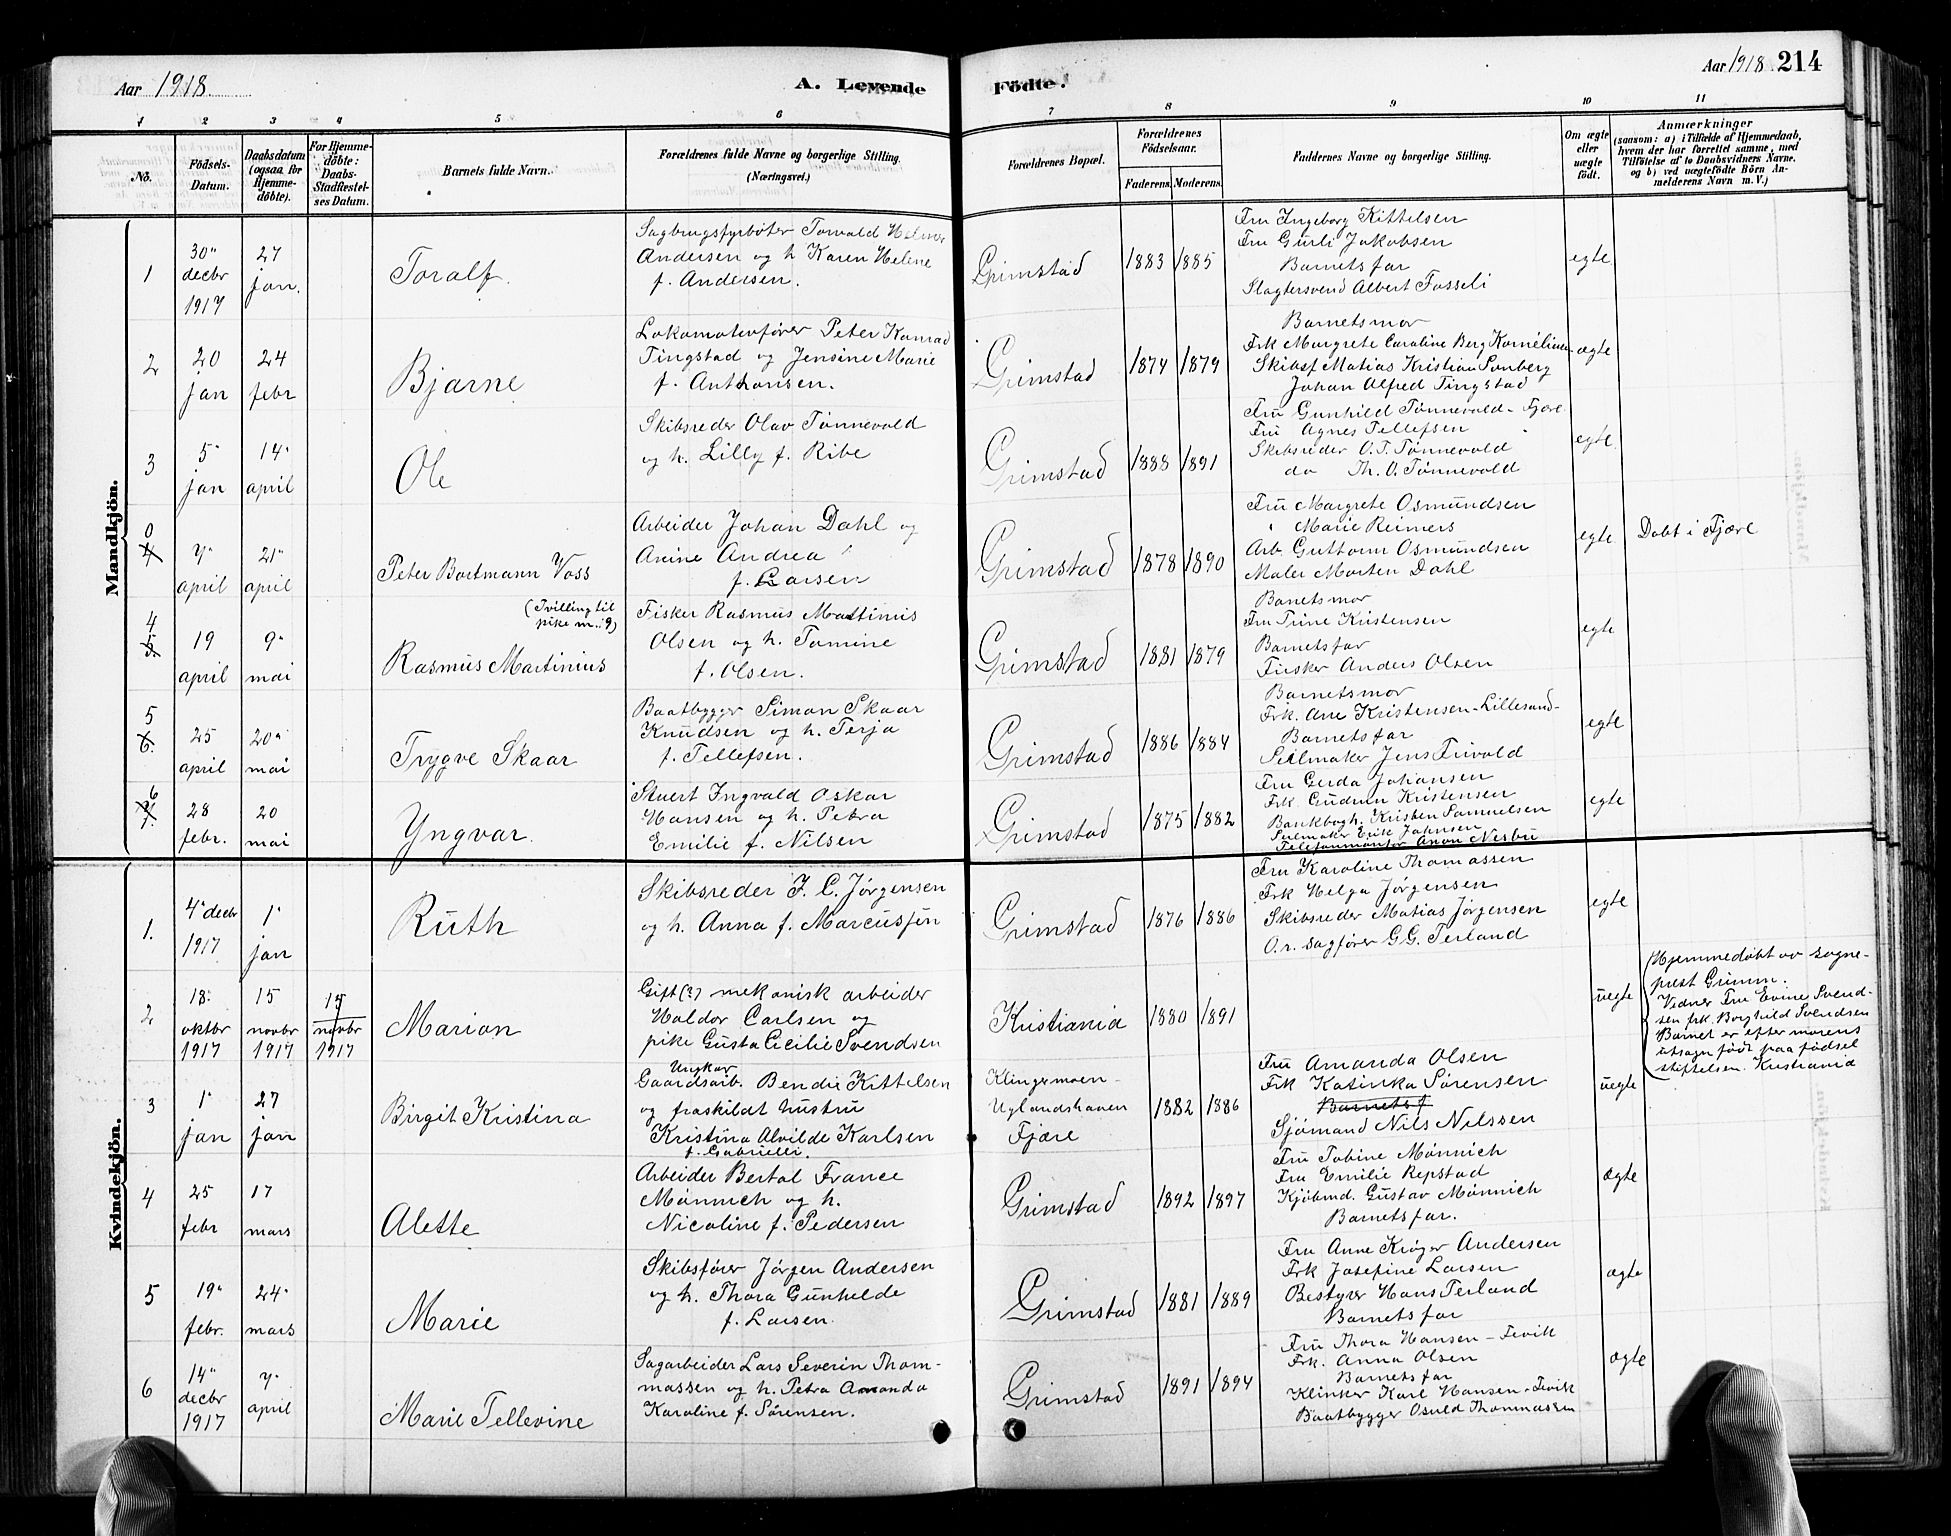 Aar 1918.
A. Levende
Födte.
Aar 1918 214
1 2 3 4 5 6 7 8 9 10 11
No.
Födsels-
Datum.
Daabsdatum
(ogsaa for
Hjemme-
döbte).
For Hjemme-
döbte:
Daabs-
Stadfæstel-
ses Datum.
Barnets fulde Navn.
Forældrenes fulde Navne og borgerlige Stilling.
(Næringsvei.)
Forældrenes Bopæl.
Forældrenes
Födselsaar.
Faderens. Moderens.
Faddernes Navne og borgerlige Stilling.
Om ægte
eller
uægte
födt.
Anmærkninger
(saasom: a) i Tilfælde af Hjemmedaab,
hvem der har forrettet samme, med
Tilföielse af to Daabsvidners Navne.
og b) ved uægtefödte Börn An-
melderens Navn m. V.)
Mandkjön.
1
30"
decbr
1917
27
jan.
Toralf
Sagbrugsfyrbøter Torvald Helmer
Andersen og h. Karen Helene
f. Andersen.
Grimstad
1883 1885
Fru Ingeborg Kittelsen
Fru Gurli Jakobsen
Barnets far
Slagtersvend Albert Fosseli
egte
2
20
jan
24
febr
Bjarne
Lokomotivfører Peter Konrad
Tingstad og Jensine Marie
f. Anthonsen.
Grimstad
1874 1879
Barnets mor
Frk Margrete Caroline Berg Kornelius-
Skibsf Matias Kristian Sonberg
Johan Alfred Tingstad
ægte
3
5"
jan
14"
april
Ole
Skibsreder Olav Tønnevold
og h. Lilly f. Ribe
Grimstad
1888 1891
Fru Gunhild Tønnevold - Fjære
Fru Agnes Tellefsen
Skibsreder O. T. Tønnevold
do Th. O. Tønnevold
egte
0
4
7"
april
21"
april
Peter Bortmann Voss
Arbeider Johan Dahl og
Anine Andrea
f. Larsen
Grimstad
1878 1890
Fru Margrete Osmundsen
" Marie Reimers
Arb. Guttorm Osmundsen
Maler Morten Dahl
egte
Døbt i Fjære
4
5
19
april
9"
mai
(Tvilling til
pike nr. 9)
Rasmus Martinius
Fisker Rasmus Matinius
Olsen og h. Tomine
f. Olsen.
Grimstad
1881 1879
Banets mor
Fru Trine Kristensen
Barnets far
Fisker Anders Olsen
egte
5
6.
25
april
20"
mai
Trygve Skaar
Baatbygger Simon Skaar
Knudsen og h. Terja
f. Tellefsen.
Grimstad
1886 1884
Barnets mor
Frk. Ane Kristensen - Lillesand-
Barnets far
Seilmaker Jens Frivold
egte
6
7.
28
febr.
20
mai
Yngvar.
Stuert Ingvald Oskar
Hansen og h. Petra
Emilie f. Nilsen
Grimstad
1875 1882
Fru Gerda Johansen
Frk. Gudrun Kristensen
Bankbogh. Kristen Samuelsen
Seilmaker Erik Johnsen
Telefonmontør Anon Nesbu
egte
Kvindekjön.
1.
4" decbr
1917
1"
jan
Ruth
Skibsreder J. C. Jørgensen
og h. Anna f. Marcussen
Grimstad
1876 1886
Fru Karoline Thomassen
Frk Helga Jørgensen
Skibsreder Matias Jørgensen
O.r. sagfører G.G. Terland
egte
2
18
oktbr
1917
15
novbr
1917
15
novbr
1917
Marion
Gift (?) mekanisk arbeider
Haldor Carlsen og
pike Gusta Cicilie Svendsen
Kristiania
1880 1891
uegte
Hjemmedøbt av sogne-
prest Grimm.
Vidner Fru Evine Svend-
sen frk. Borghild Svendsen
Barnet er efter morens
utsagn født paa fødsel
stiftelsen. Kristiania
3
1"
jan
27
jan
Birgit Kristina
Ungkar
Gaardsarb. Bendix Kittelsen
og fraskildt hustru
Kristina Alvilde Karlsen
f. Gabrielli.
Klingermoen-
Uglandshaven
Fjære
1882 1886
Fru Amanda Olsen
Frk Katinka Sørensen
Barnets f
Sjømand Nils Nilssen
uegte
4
25
febr
17
mars
Alette
Arbeider Bertal France
Mønnich og h.
Nicoline f. Pedersen
Grimstad
1892 1897
Fru Tobine Mønnich
Fru Emilie Repstad
Kjøbmd. Gustav Mønnich
Barnets far.
ægte
5
19"
febr.
24"
mars
Marie
Skibsfører Jørgen Andersen
og h. Thora Gunhilde
f. Larsen.
Grimstad
1881 1889
Fru Anne Krøger Andersen
Frk Josefine Larsen
Bestyrer Hans Terland
Barnets far
ægte
6
14"
decbr
1917
7"
april
Marie Tellevine
Sagarbeider Lars Severin Thom-
massen og h. Petra Amanda
Karoline f. Sørensen.
Grimstad
1891 1894
Fru Thora Hansen - Fevik
Frk. Anna Olsen
Barnets far
Klinker Karl Hansen - Fevik
Baatbygger Osuld Thommassen
ægte